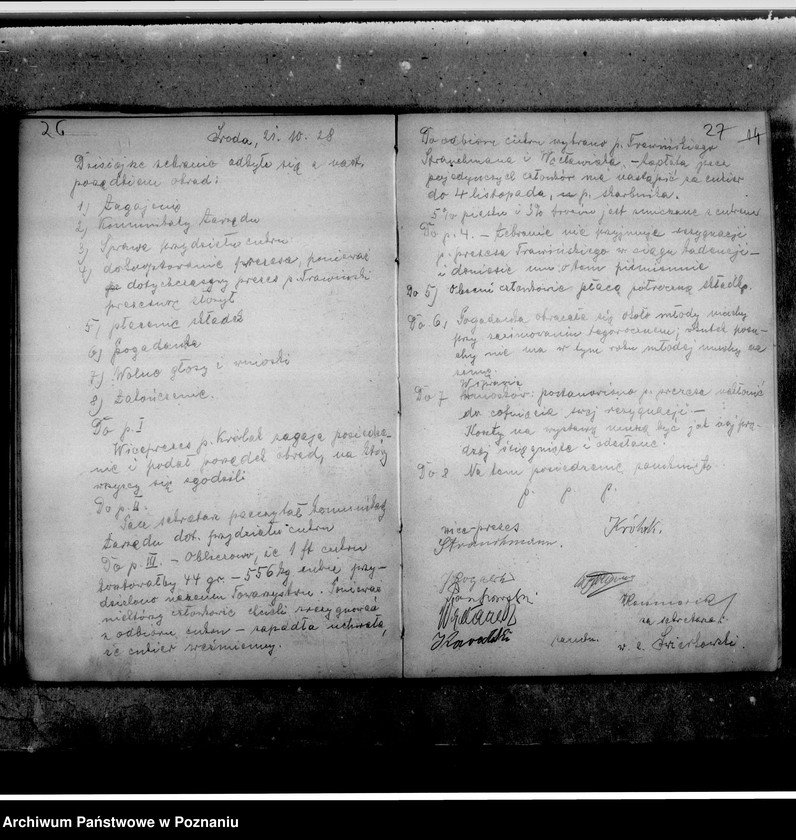 26
Środa, 21. 10. 28
Dzisiejsze zebranie odbyło się z nast.
porządkiem obrad:
1) Zagajenie
2) Komunikaty Zarządu
3) Sprawa przydziału cukru
4) dokooptowanie prezesa, ponieważ
dotychczasowy prezes p. Trawiński
prezesurę złożył
5) płacenie składek
6) Pogadanka
7) Wolne głosy i wnioski
8) Zakończenie.
Do p. I
Wiceprezes p. Królak zagaja posiedze-
nie i podał porządek obrad, na który
wszyscy się zgodzili
Do p. II.
Pan sekretarz przeczytał komunikaty
Zarządu dot. przydziału cukru
Do p. III. – Obliczono, że 1 ft cukru
kosztowałby 44 gr. – 556 kg cukru przy-
dzielono naszemu Towarzystwu. Ponieważ
niektórzy członkowie chcieli zrezygnować
z odbioru cukru – zapadła uchwała,
że cukier weźmiemy.
27
14
Do odbioru cukru wybrano p. Trawińskiego
i – Zapłata przez
pojedynczych członków ma nastąpić za cukier
do 4 listopada, u p. skarbnika.
5% piasku i 3% jest zmieszane z cukrem
Do p. 4. – Zebranie nie przyjmuje rezygnacji
p. prezesa Trawińskiego w ciągu kadencji –
i doniesie mu o tem piśmiennie
Do 5) Obecni członkowie płacą półroczną składkę.
Do 6) Pogadanka obracała się około młodej
przy zazimowaniu tegorocznem;
nie ma w tym roku młodej na
zimę.
W sprawie
Do 7 wniosków: postanowiono p. prezesa nakłonić
do cofnięcia swej rezygnacji –
na wystawę muszą być jak naj prę-
dzej ściągnięte i odesłane.
Do 8 Na tem posiedzenie zamknięto
p. p. p.
vice-prezes
Królak.
za sekretarza
Kowalski
w. z. Świerkowski.